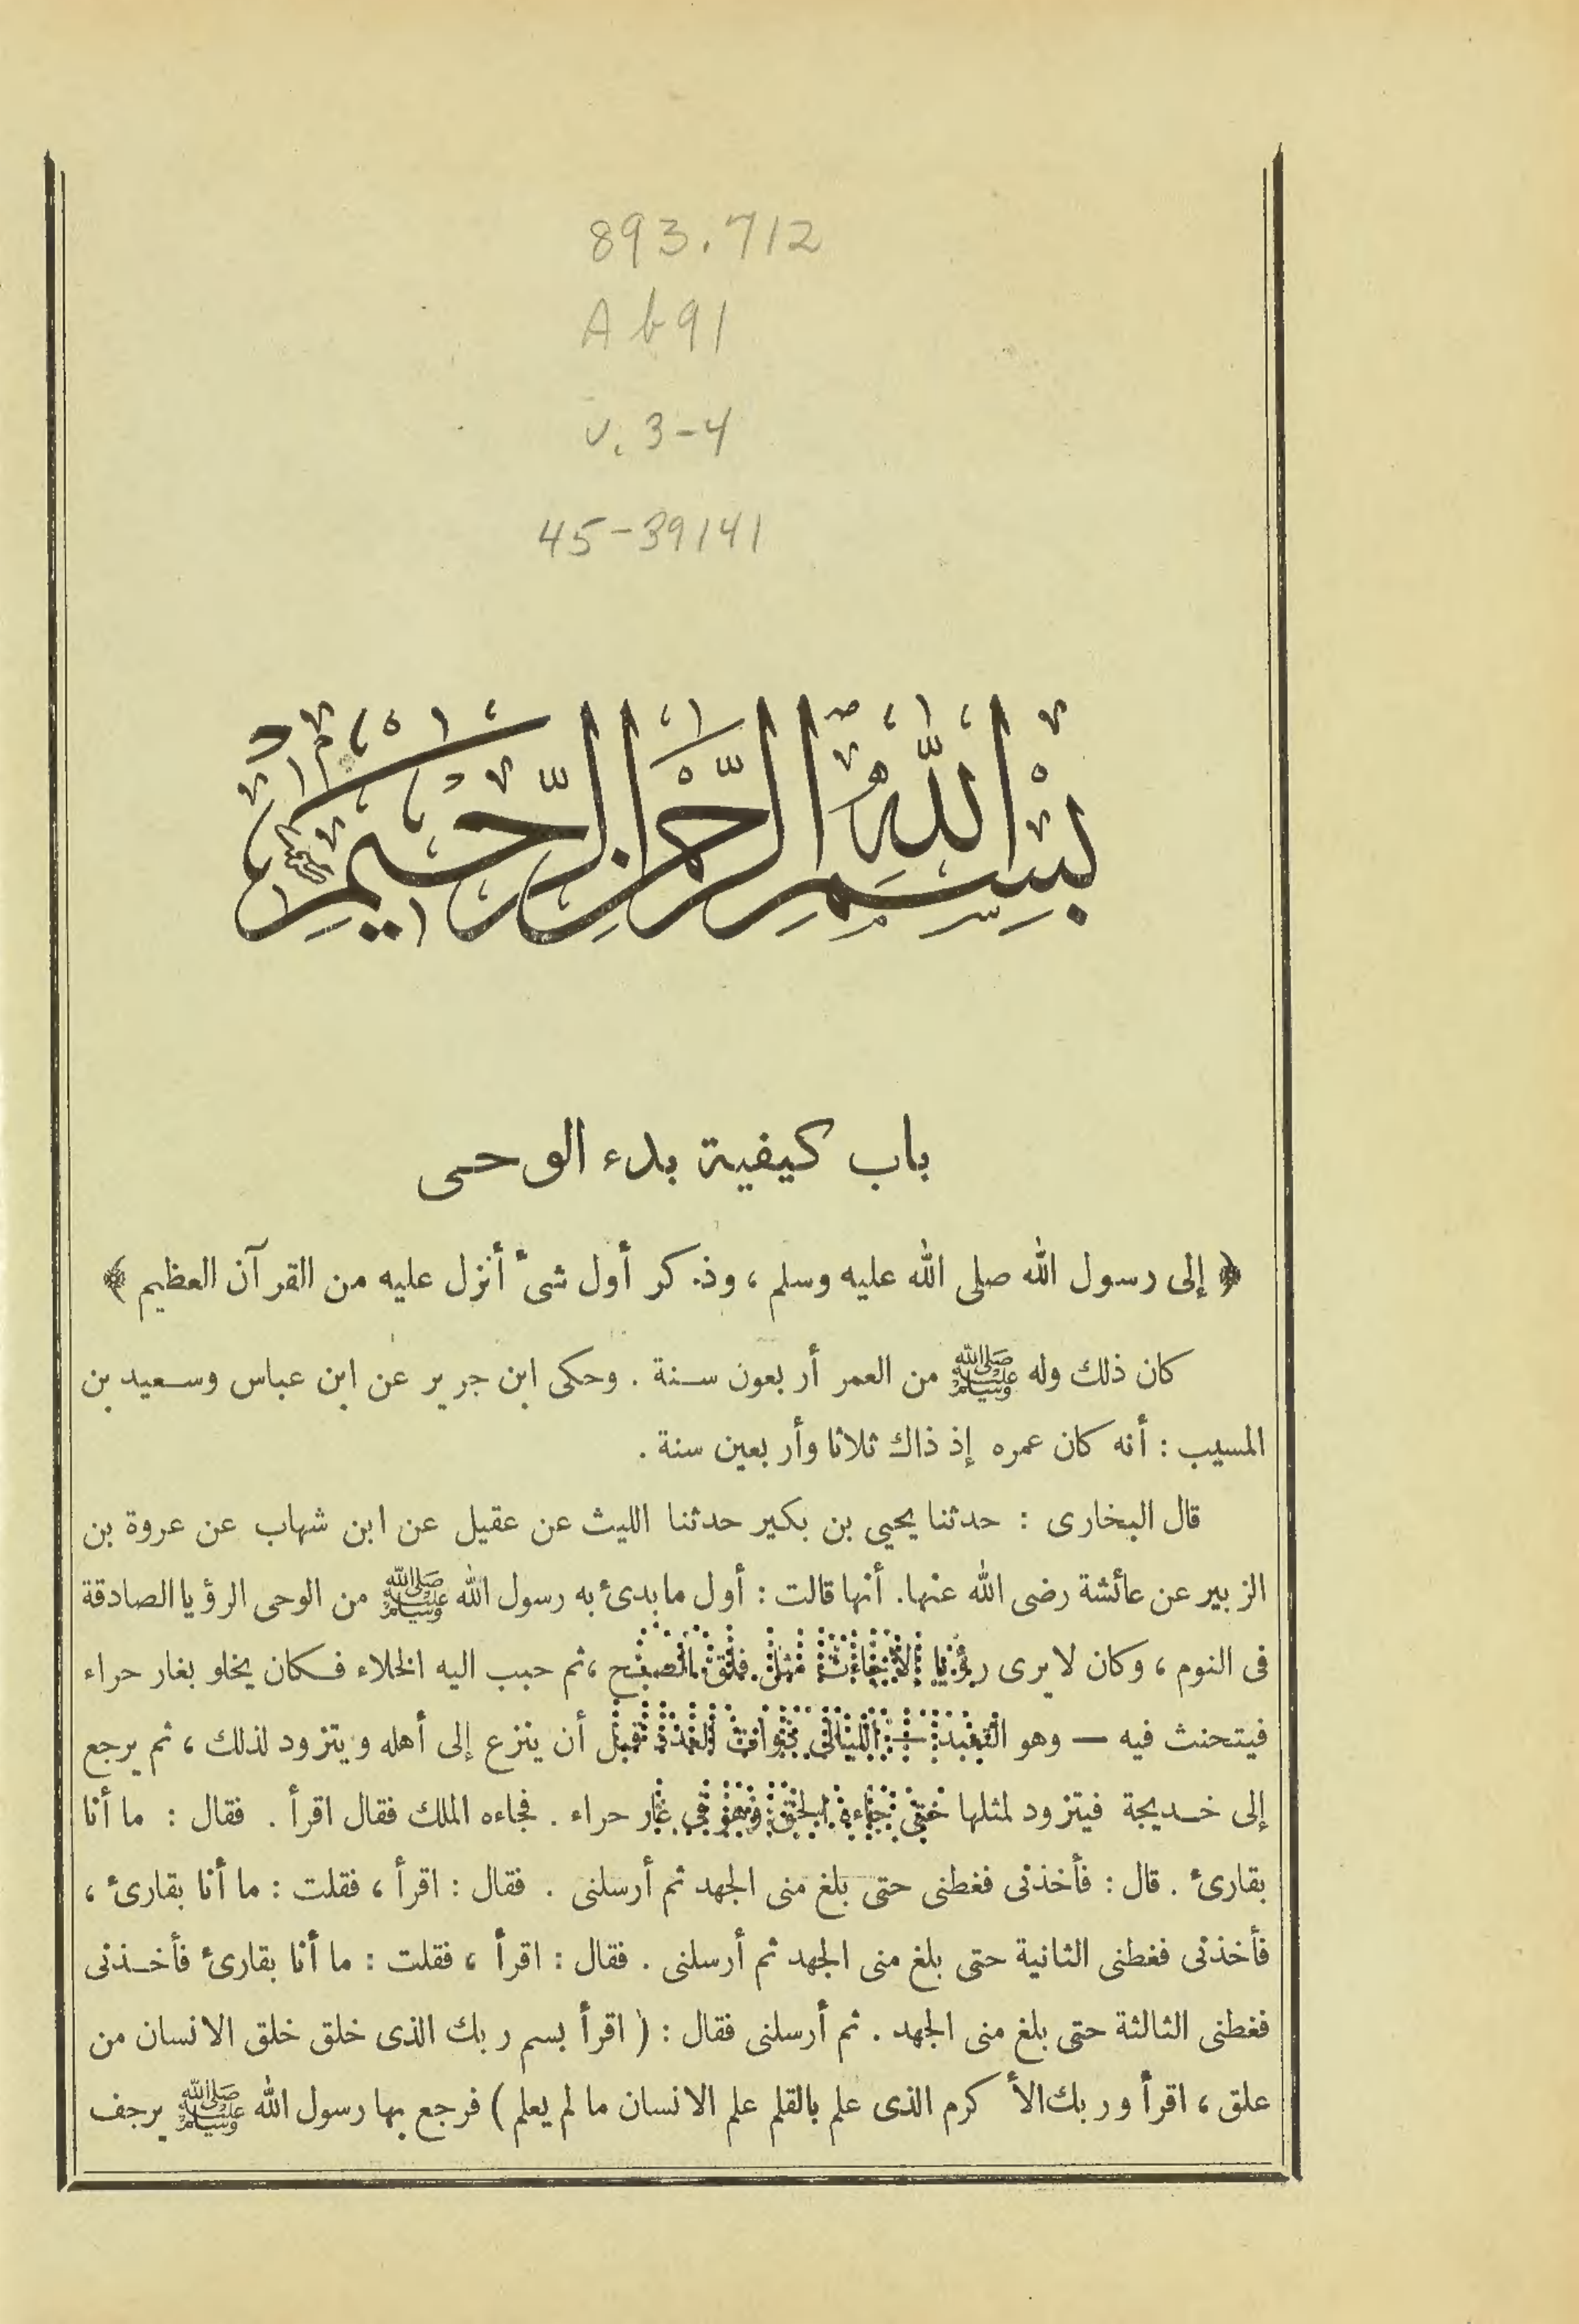 893.712
Ab91
v. 3-4
45-39141
بِسْمِ اللهِ الرَّحْمٰنِ الرَّحِيمِ
باب كيفية بدء الوحى
﴿ إلى رسول الله صلى الله عليه وسلم ، وذكر أول شىء أنزل عليه من القرآن العظيم ﴾
كان ذلك وله ﷺ من العمر أربعون سنة . وحكى ابن جرير عن ابن عباس وسعيد بن
المسيب : أنه كان عمره إذ ذاك ثلاثا وأربعين سنة .
قال البخارى : حدثنا يحيي بن بكير حدثنا الليث عن عقيل عن ابن شهاب عن عروة بن
الزبير عن عائشة رضى الله عنها. أنها قالت : أول ما بدئ به رسول الله ﷺ من الوحى الرؤيا الصادقة
فى النوم ، وكان لا يرى رؤيا إلا جاءت مثل فلق الصبح ، ثم حبب اليه الخلاء فكان يخلو بغار حراء
فيتحنث فيه — وهو التعبد — الليالى ذوات العدد قبل أن ينزع إلى أهله ويتزود لذلك ، ثم يرجع
إلى خديجة فيتزود لمثلها حتى جاءه الحق وهو في غار حراء . فجاءه الملك فقال اقرأ . فقال : ما أنا
بقارئ . قال : فأخذنى فغطنى حتى بلغ منى الجهد ثم أرسلنى . فقال : اقرأ ، فقلت : ما أنا بقارئ ،
فأخذنى فغطنى الثانية حتى بلغ منى الجهد ثم أرسلنى . فقال : اقرأ ، فقلت : ما أنا بقارئ فأخذنى
فغطنى الثالثة حتى بلغ منى الجهد . ثم أرسلنى فقال : ( اقرأ بسم ربك الذى خلق خلق الانسان من
علق ، اقرأ وربك الأكرم الذى علم بالقلم علم الانسان ما لم يعلم ) فرجع بها رسول الله ﷺ يرجف